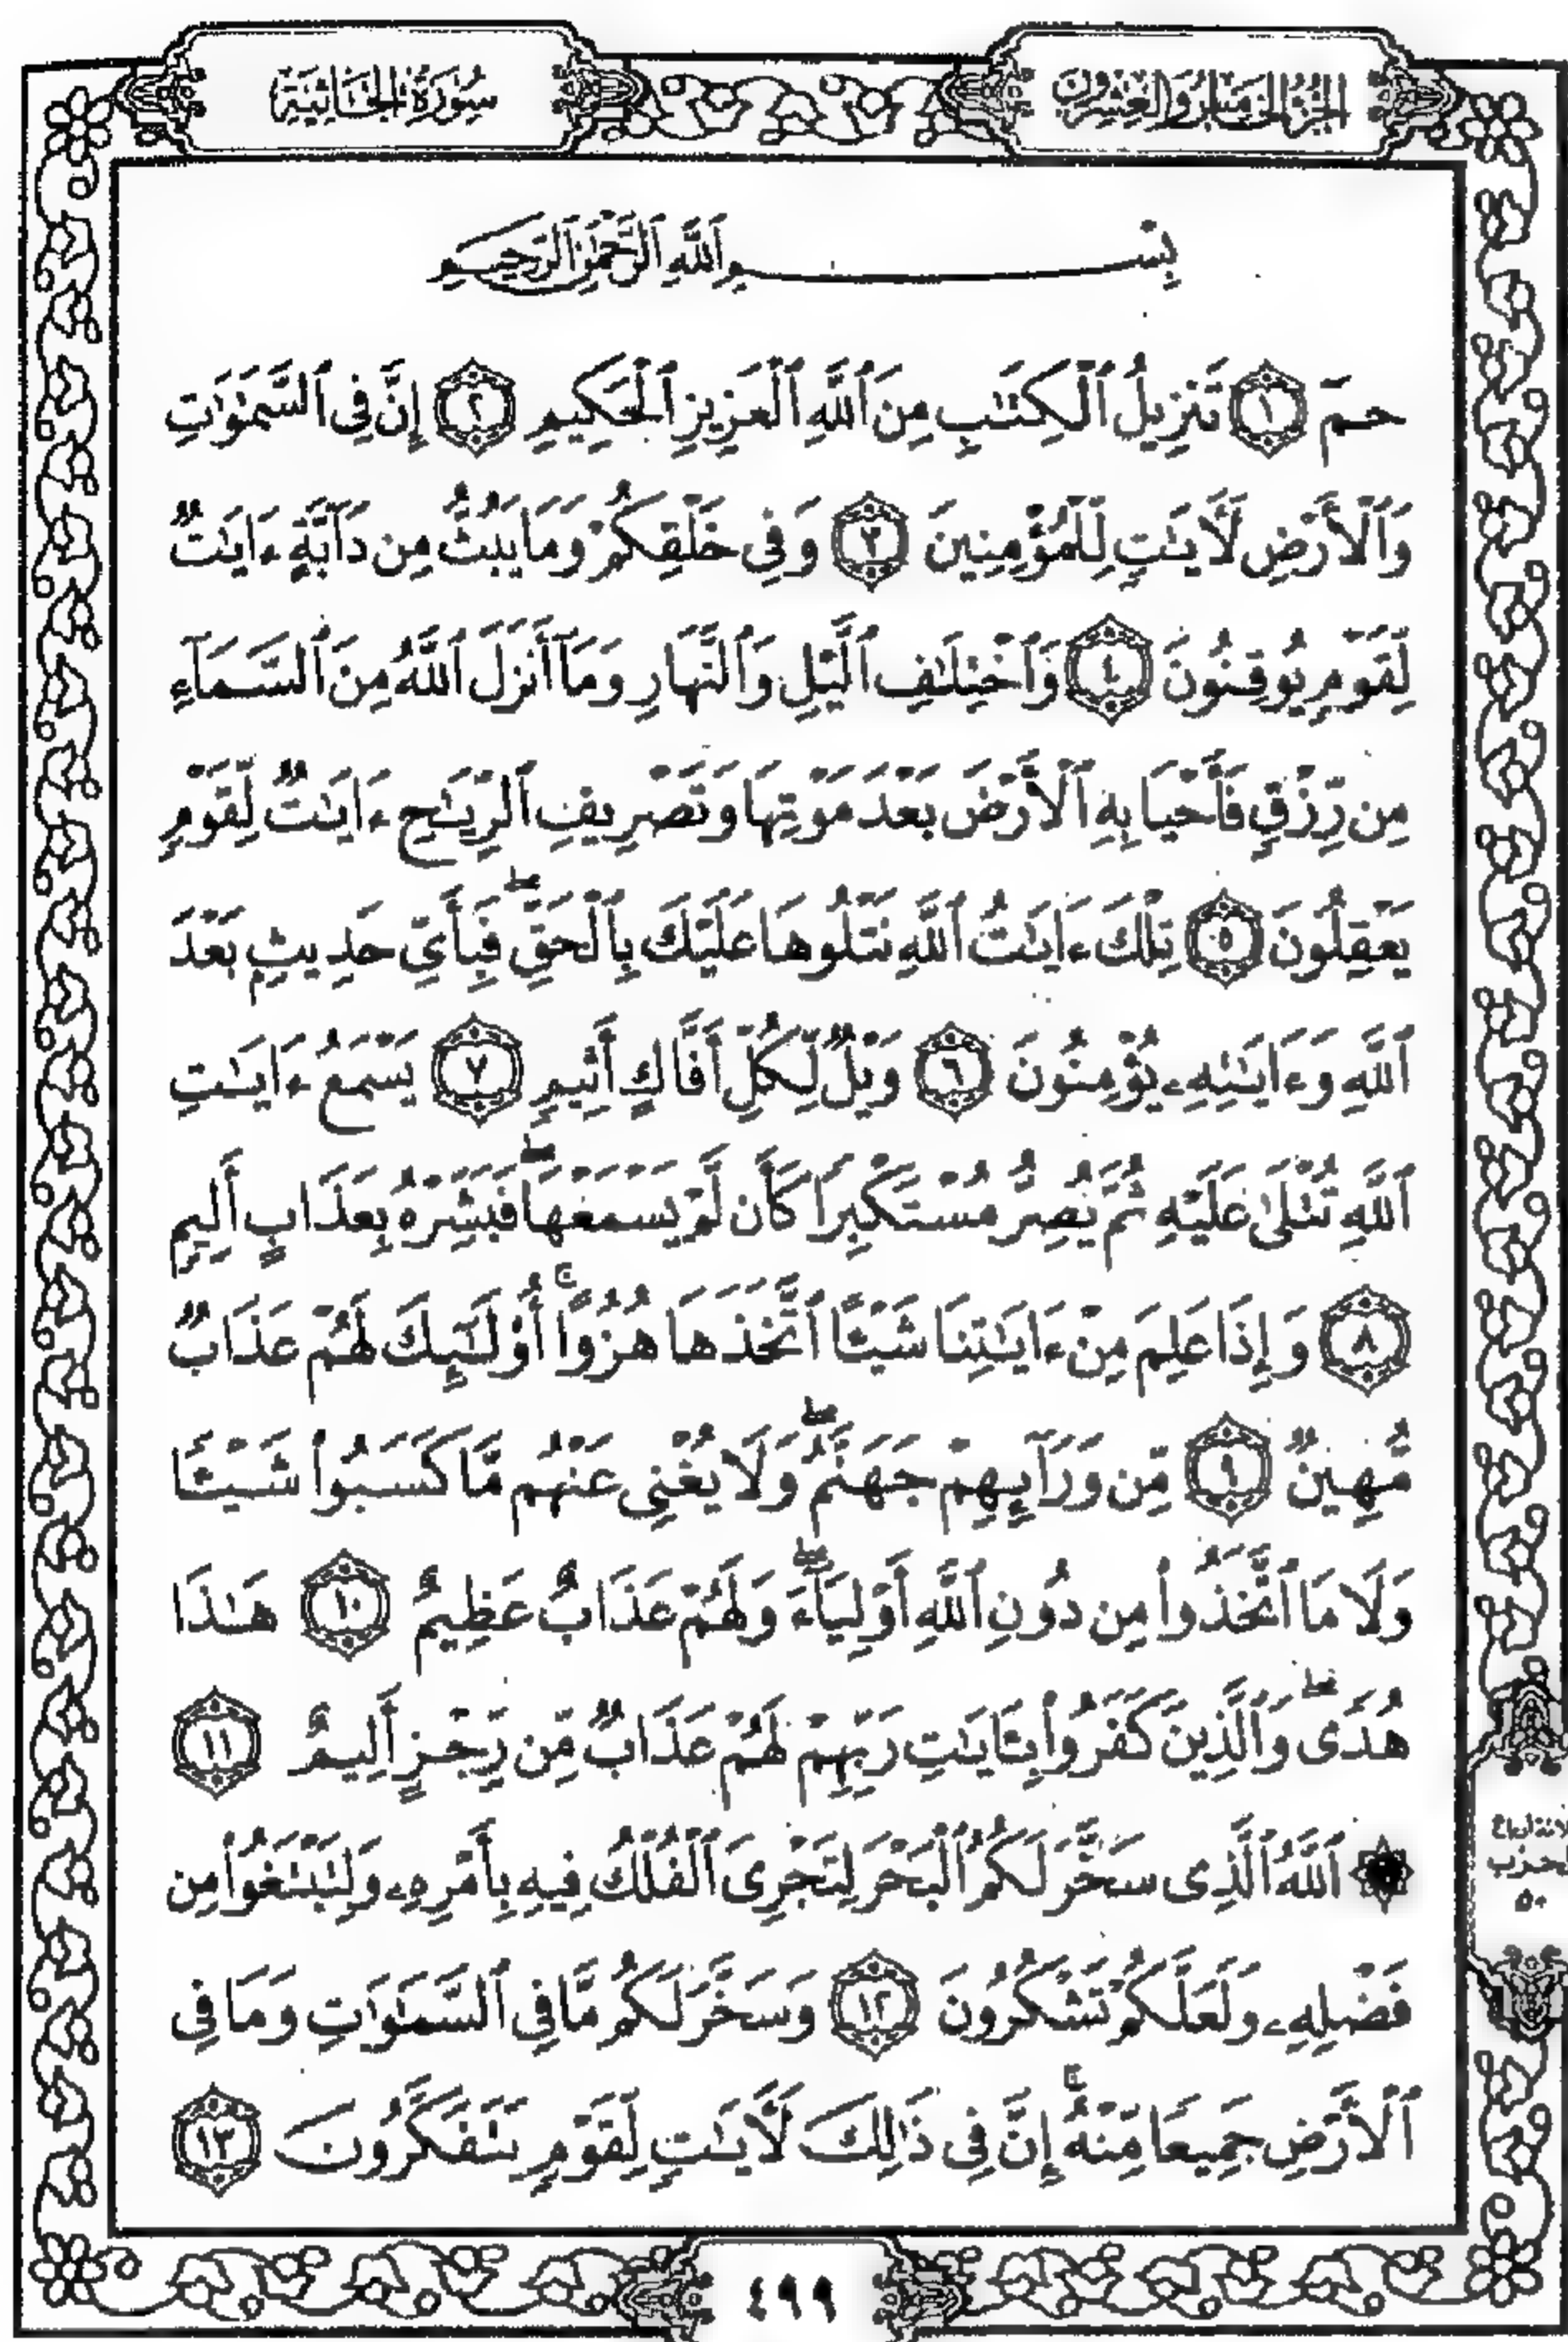 الجزء الخامس والعشرون
سورة الجاثية
بِسْمِ ٱللَّهِ ٱلرَّحْمَٰنِ ٱلرَّحِيمِ
حمٓ ١ تَنزِيلُ ٱلْكِتَٰبِ مِنَ ٱللَّهِ ٱلْعَزِيزِ ٱلْحَكِيمِ ٢ إِنَّ فِى ٱلسَّمَٰوَٰتِ
وَٱلْأَرْضِ لَءَايَٰتٍ لِّلْمُؤْمِنِينَ ٣ وَفِى خَلْقِكُمْ وَمَا يَبُثُّ مِن دَآبَّةٍ ءَايَٰتٌ
لِّقَوْمٍ يُوقِنُونَ ٤ وَٱخْتِلَٰفِ ٱلَّيْلِ وَٱلنَّهَارِ وَمَآ أَنزَلَ ٱللَّهُ مِنَ ٱلسَّمَآءِ
مِن رِّزْقٍ فَأَحْيَا بِهِ ٱلْأَرْضَ بَعْدَ مَوْتِهَا وَتَصْرِيفِ ٱلرِّيَٰحِ ءَايَٰتٌ لِّقَوْمٍ
يَعْقِلُونَ ٥ تِلْكَ ءَايَٰتُ ٱللَّهِ نَتْلُوهَا عَلَيْكَ بِٱلْحَقِّ ۖ فَبِأَىِّ حَدِيثٍۭ بَعْدَ
ٱللَّهِ وَءَايَٰتِهِۦ يُؤْمِنُونَ ٦ وَيْلٌ لِّكُلِّ أَفَّاكٍ أَثِيمٍ ٧ يَسْمَعُ ءَايَٰتِ
ٱللَّهِ تُتْلَىٰ عَلَيْهِ ثُمَّ يُصِرُّ مُسْتَكْبِرًا كَأَن لَّمْ يَسْمَعْهَا ۖ فَبَشِّرْهُ بِعَذَابٍ أَلِيمٍ
٨ وَإِذَا عَلِمَ مِنْ ءَايَٰتِنَا شَيْـًٔا ٱتَّخَذَهَا هُزُوًا ۚ أُو۟لَٰٓئِكَ لَهُمْ عَذَابٌ
مُّهِينٌ ٩ مِّن وَرَآئِهِمْ جَهَنَّمُ ۖ وَلَا يُغْنِى عَنْهُم مَّا كَسَبُوا۟ شَيْـًٔا
وَلَا مَا ٱتَّخَذُوا۟ مِن دُونِ ٱللَّهِ أَوْلِيَآءَ ۖ وَلَهُمْ عَذَابٌ عَظِيمٌ ١٠ هَٰذَا
هُدًى ۖ وَٱلَّذِينَ كَفَرُوا۟ بِـَٔايَٰتِ رَبِّهِمْ لَهُمْ عَذَابٌ مِّن رِّجْزٍ أَلِيمٌ ١١
۞ ٱللَّهُ ٱلَّذِى سَخَّرَ لَكُمُ ٱلْبَحْرَ لِتَجْرِىَ ٱلْفُلْكُ فِيهِ بِأَمْرِهِۦ وَلِتَبْتَغُوا۟ مِن
فَضْلِهِۦ وَلَعَلَّكُمْ تَشْكُرُونَ ١٢ وَسَخَّرَ لَكُم مَّا فِى ٱلسَّمَٰوَٰتِ وَمَا فِى
ٱلْأَرْضِ جَمِيعًا مِّنْهُ ۚ إِنَّ فِى ذَٰلِكَ لَءَايَٰتٍ لِّقَوْمٍ يَتَفَكَّرُونَ ١٣
٥٠
٤٩٩